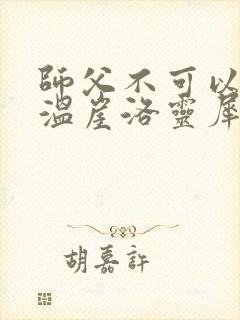 師父不可以
溫崖洛靈犀
胡嘉許